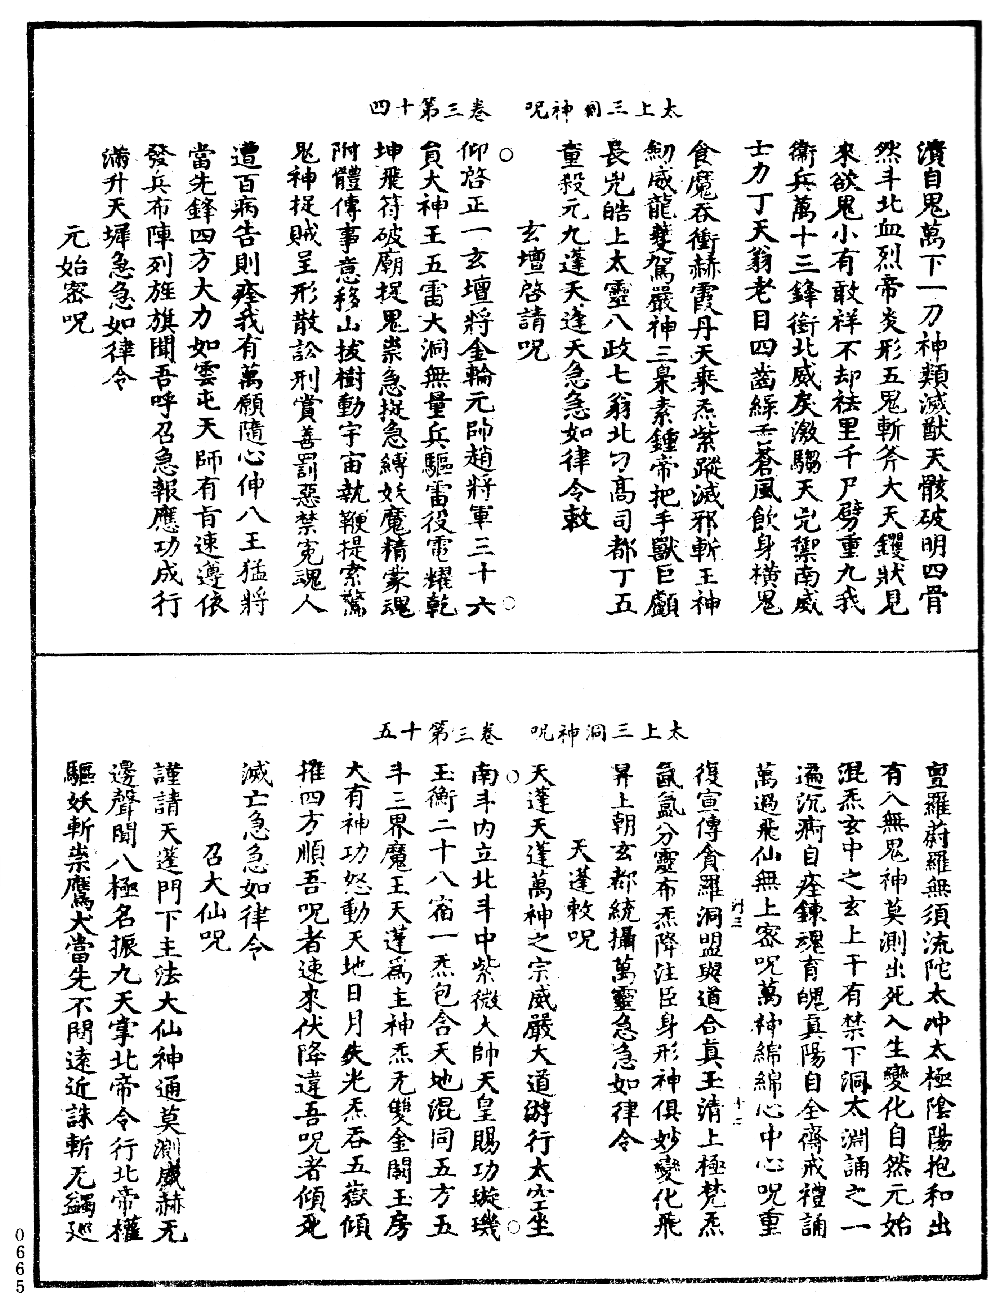 太上三洞神呪　卷三第十四
潰自鬼萬下一刀神類滅獸天骸破明四骨
然斗北血烈帝炎形五鬼斬斧大天钁狀見
來欲鬼小有敢祥不却祛里千尸劈重九我
衛兵萬十三鋒銜北威矣激騶天兇禦南威
士力丁天翁老目四齒綠舌蒼風飲身橫鬼
食魔吞衝赫霞丹天乘炁紫蹤滅邪斬王神
劒威龍雙駕嚴神三梟素鍾帝把手獸巨顱
長兇皓上太靈八政七翁北刁高司都丁五
童殺元九蓬天蓬天急急如律令敕
玄壇啓請呪
仰啓正一玄壇將金輪元帥趙將軍三十六
員大神王五雷大洞無量兵驅雷役電耀乾
坤飛符破廟捉鬼祟急捉急縛妖魔精蒙魂
附體傳事意移山拔樹動宇宙執鞭提索驚
鬼神捉賊呈形散訟刑賞善罰惡禁寃魂人
遭百病告則痊我有萬願隨心伸八王猛將
當先鋒四方大力如雲屯天師有旨速遵依
發兵布陣列旌旗聞吾呼召急報應功成行
滿升天墀急急如律令
元始密呪
太上三洞神呪　卷三第十五
亶羅蔚羅無須流陀太冲太極陰陽抱和出
有入無鬼神莫測出死入生變化自然元始
混炁玄中之玄上干有禁下洞太淵誦之一
過沉痾自痊鍊魂育魄真陽自全齋戒禮誦
萬過飛仙無上密呪萬神綿綿心中心呪重
復宣傳貪羅洞盟與道合真玉清上極梵炁
氤氳分靈布炁降注臣身形神俱妙變化飛
昇上朝玄都統攝萬靈急急如律令
天蓬敕呪
天蓬天蓬萬神之宗威嚴大道游行太空坐
南斗內立北斗中紫微大帥天皇賜功璇璣
玉衡二十八宿一炁包含天地混同五方五
斗三界魔王天蓬爲主神炁无雙金闕玉房
大有神功怒動天地日月失光炁吞五嶽傾
摧四方順吾呪者速來伏降違吾呪者傾死
滅亡急急如律令
召大仙呪
謹請天蓬門下主法大仙神通莫測威赫无
邊聲聞八極名振九天掌北帝令行北帝權
驅妖斬祟鷹犬當先不問遠近誅斬无蠲巡
0665